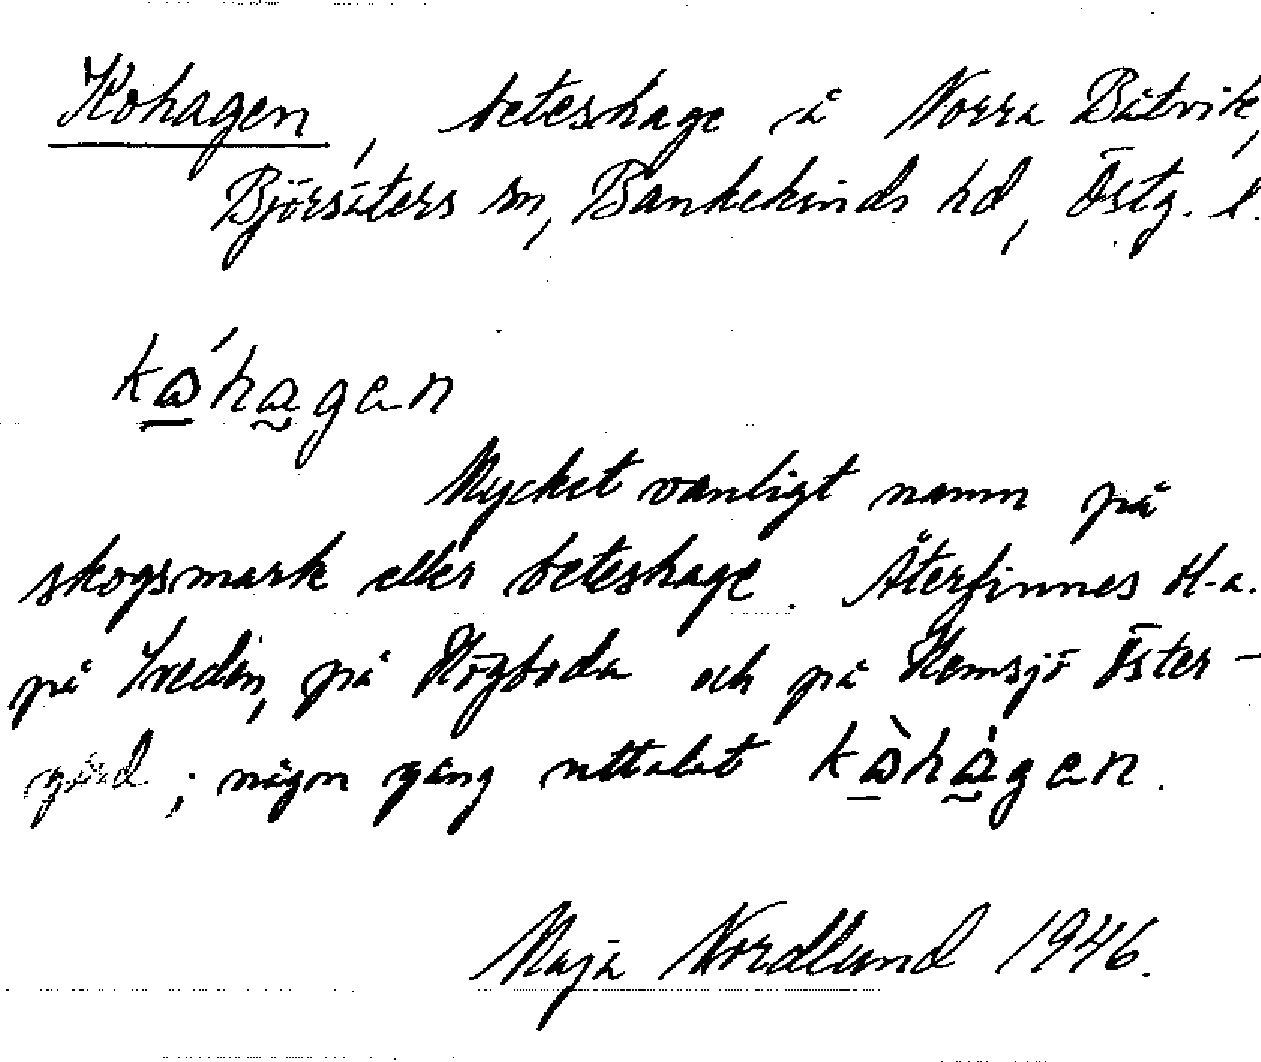 Kohagen, beteshage å Norra Båtvik,
Björsäters sn, Bankekinds hd, Östg. l.
kåhagen
Mycket vanligt namn på
skogsmark eller beteshage. Återfinnes bl.a.
på Sveden, på Högboda och på Hemsjö Öster-
gård; någon gång uttalat kåhagen.
Maja Nordlund 1946.